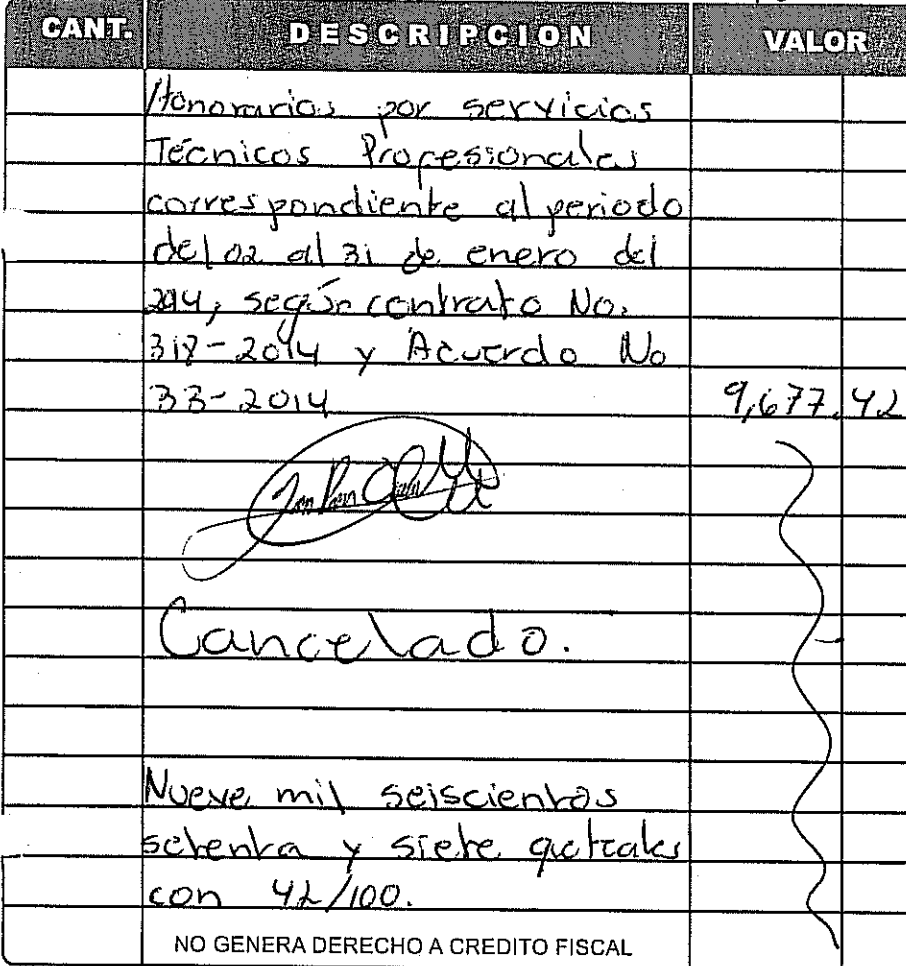 CANT. DESCRIPCION VALOR
Honorarios por servicios
Técnicos Profesionales
correspondiente al periodo
del 02 al 31 de enero del
2014, según contrato No.
318-2014 y Acuerdo No
33-2014 9,677.42
Cancelado.
Nueve mil seiscientos
setenta y siete quetzales
con 42/100.
NO GENERA DERECHO A CREDITO FISCAL